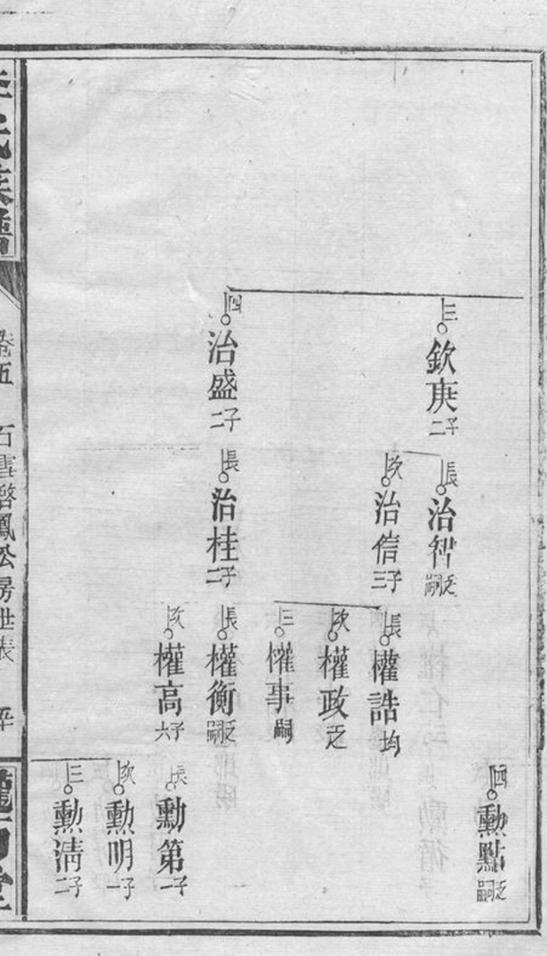 三
欽庚 二子
四
治盛 二子
長
治智 乏嗣
次
治信 三子
長
治桂 二子
長
權誥
次
權政 乏
三
權事 嗣
長
權衡 乏嗣
次
權高 六子
四
勳點 乏嗣
長
勳第 一子
次
勳明 一子
三
勳清 二子
氏族譜
卷五 石雲啓鳳公房世表